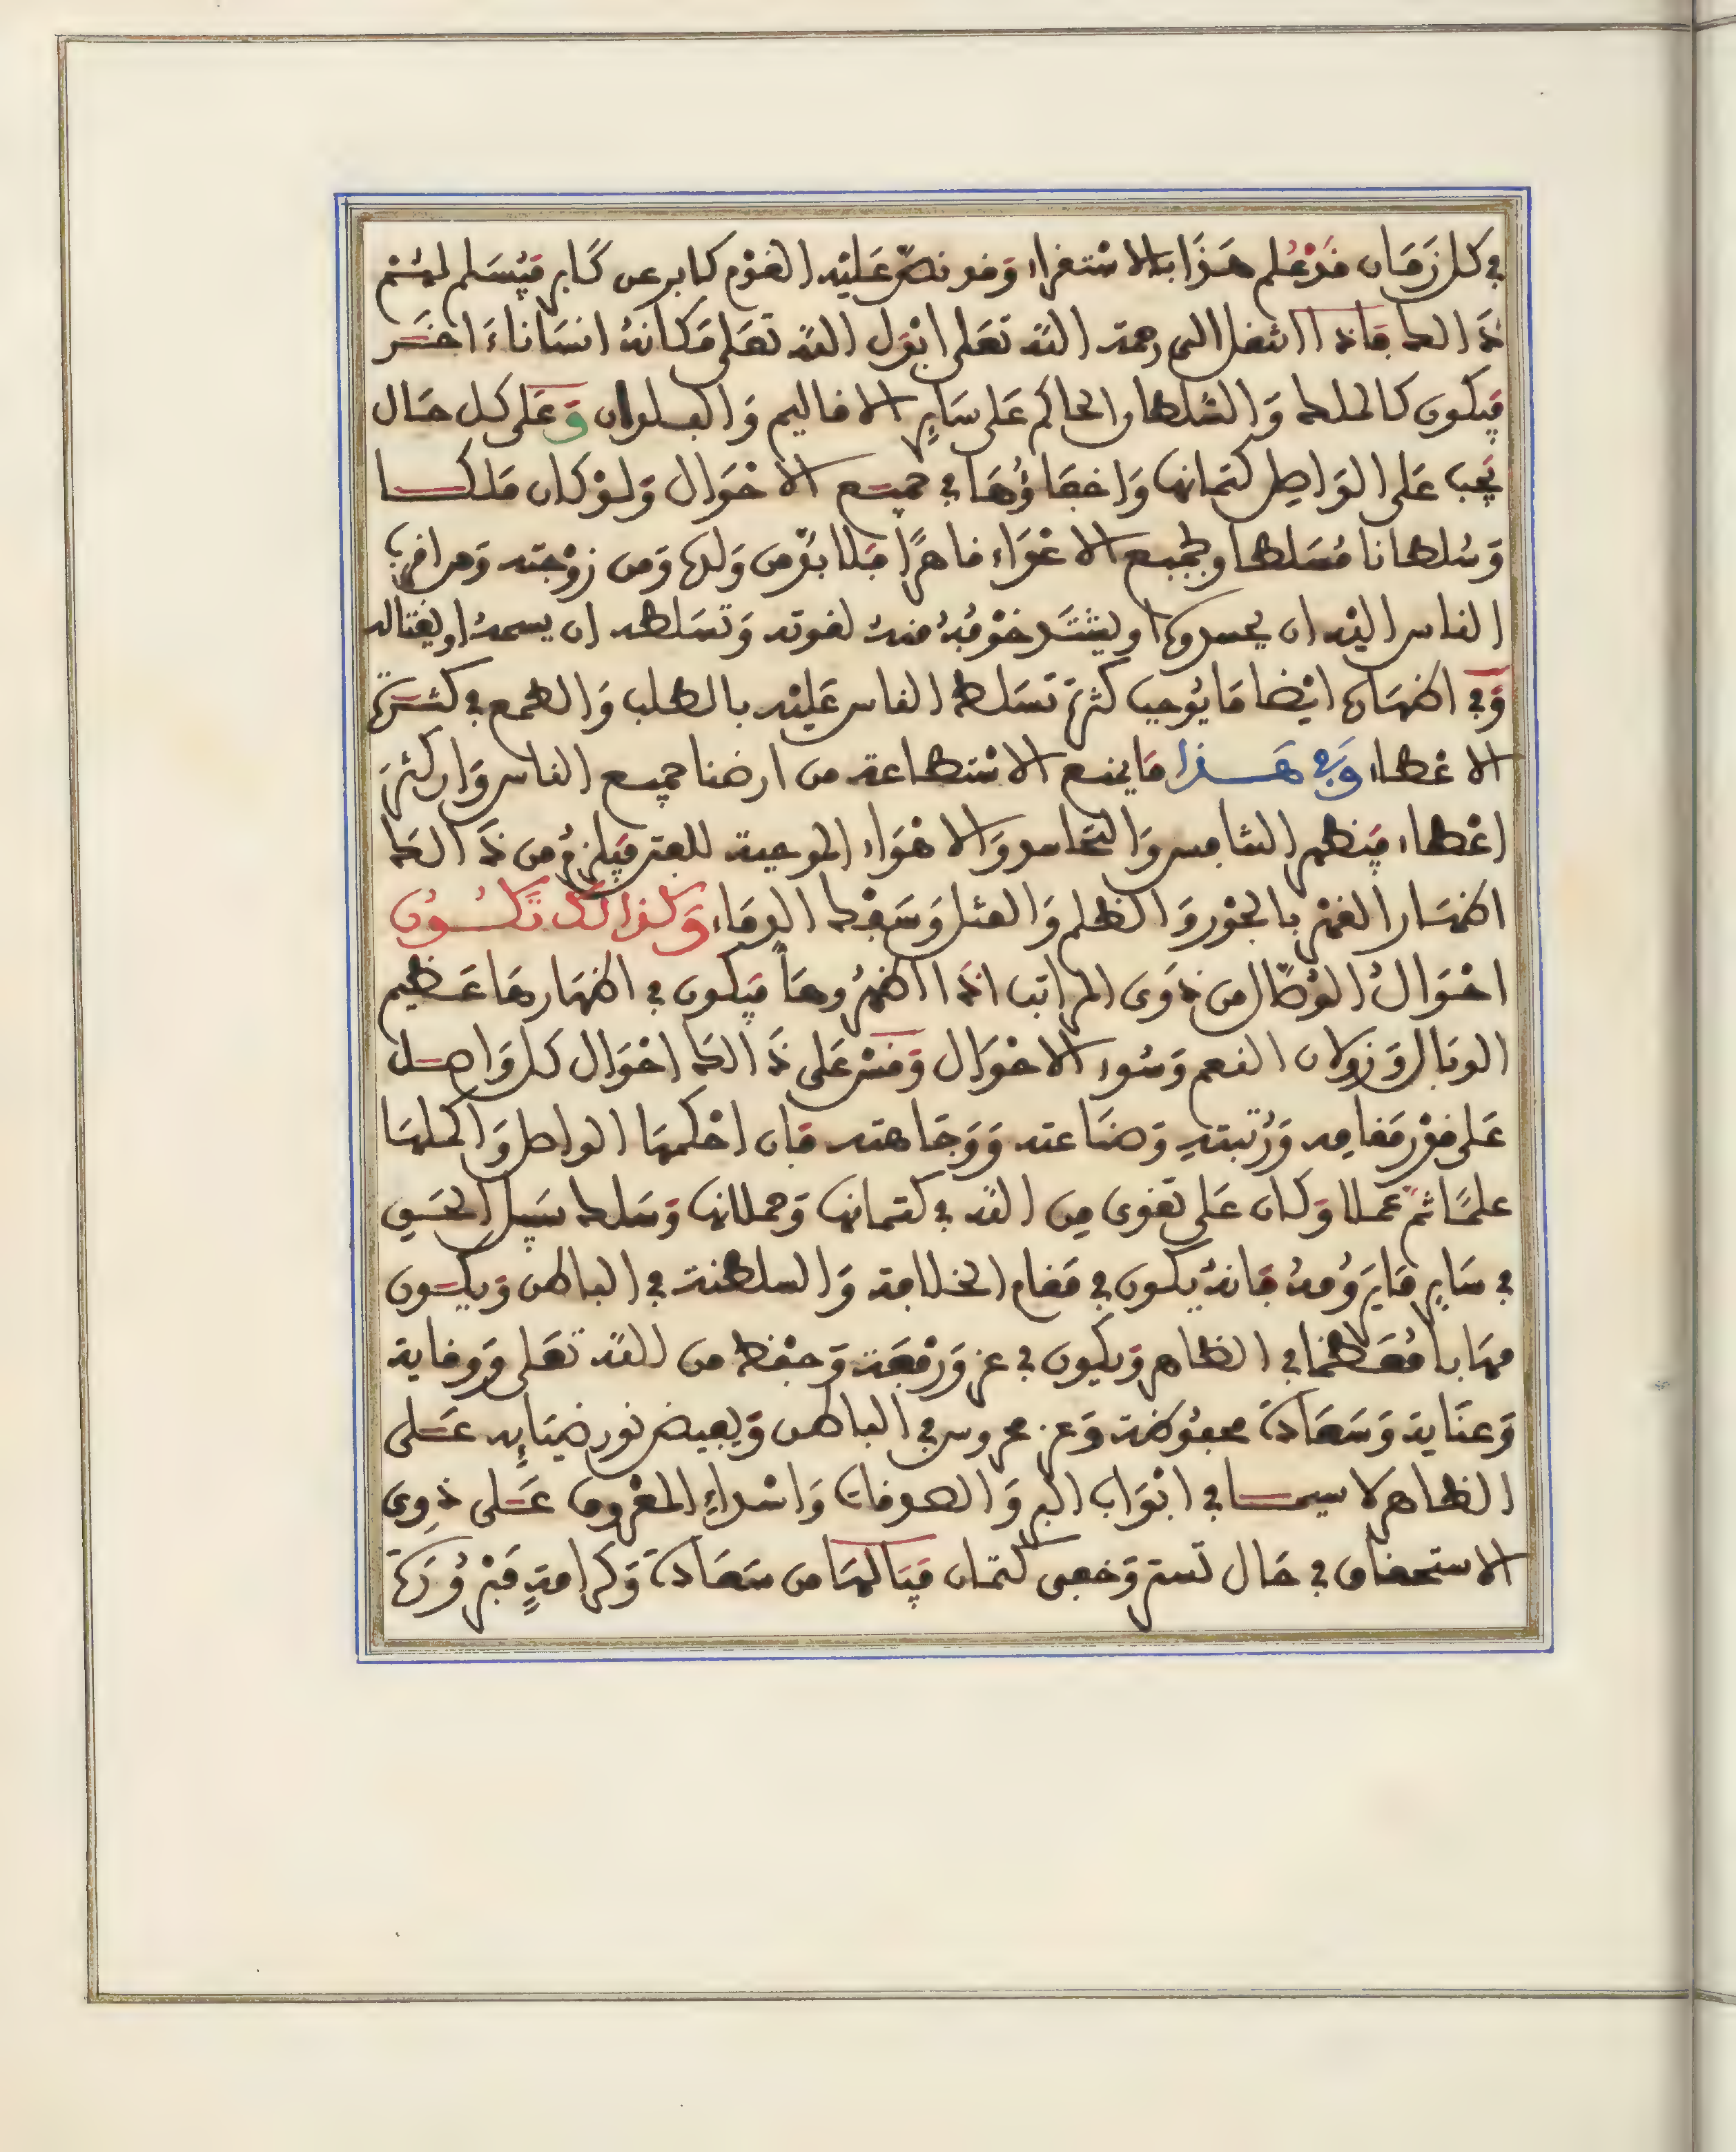 في كل زمان فدْ عُلم هذا بالاستقراء وقد نصّ عليه القوم كابر عن كابر فيسلم لهم
ذالك فاذا انتقل الى رحمة الله تعلى ابدل الله تعلى مكانه انسانا ءاخر
فيكون كالملك والسلطان الحاكم على ساير الاقاليم والبلدان وعلى كل حال
يجب على الواصل كتمانها واخفاؤها في جميع الاحوال ولو كان ملكا
وسلطانا مسلطا ولجميع الاعداء قاهرا فلا يؤمن ولدها ومن زوجته ومن اقرب
الناس اليه ان يحسدوها او يشتد خوفه منه لقوته وتسلطه ان يسمه او يغتاله
وفي اظهارها ايضا ما يوجب كثرة تسلط الناس عليه بالطلب والطمع في كثرة
الاعطاء وفي هذا ما يمنع الاستطاعة من ارضا جميع الناس وان كثر
اعطاء فيظهر التنافس والتحاسد والاهواء الموجبة للفتن فيلزم من ذالك
اظهار القهر بالجور والظلم والقتل وسفك الدماء وكذالك تكون
احوال الوصّال من ذوى المراتب اذا اظهروها فيكون في اظهارها عظيم
الوبال وزولان النعم وسوء الاحوال وقس على ذالك احوال كل واصل
على قدر مقامه ورتبته وصناعته ووجاهته فان احكمها الواصل واكملها
علما ثم عملا وكان على تقوى من الله في كتمانها وحملانها وسلك سبيل الحسنى
في ساير ما يرومه فانه يكون في مقام الخلافة والسلطنة في الباطن ويكون
مهابا معظما في الظاهر ويكون في عز ورفعة وحفظ من الله تعلى ووقاية
وعناية وسعادة محفوظة وعز محروس في الباطن ويفيض نور ضيايه على
الظاهر لا سيما في ابواب البر والصدقات واسداء المعروف على ذوى
الاستحقاق في حال تستر وخفى كتمان فيا لها من سعادة وكرامة مبرورة